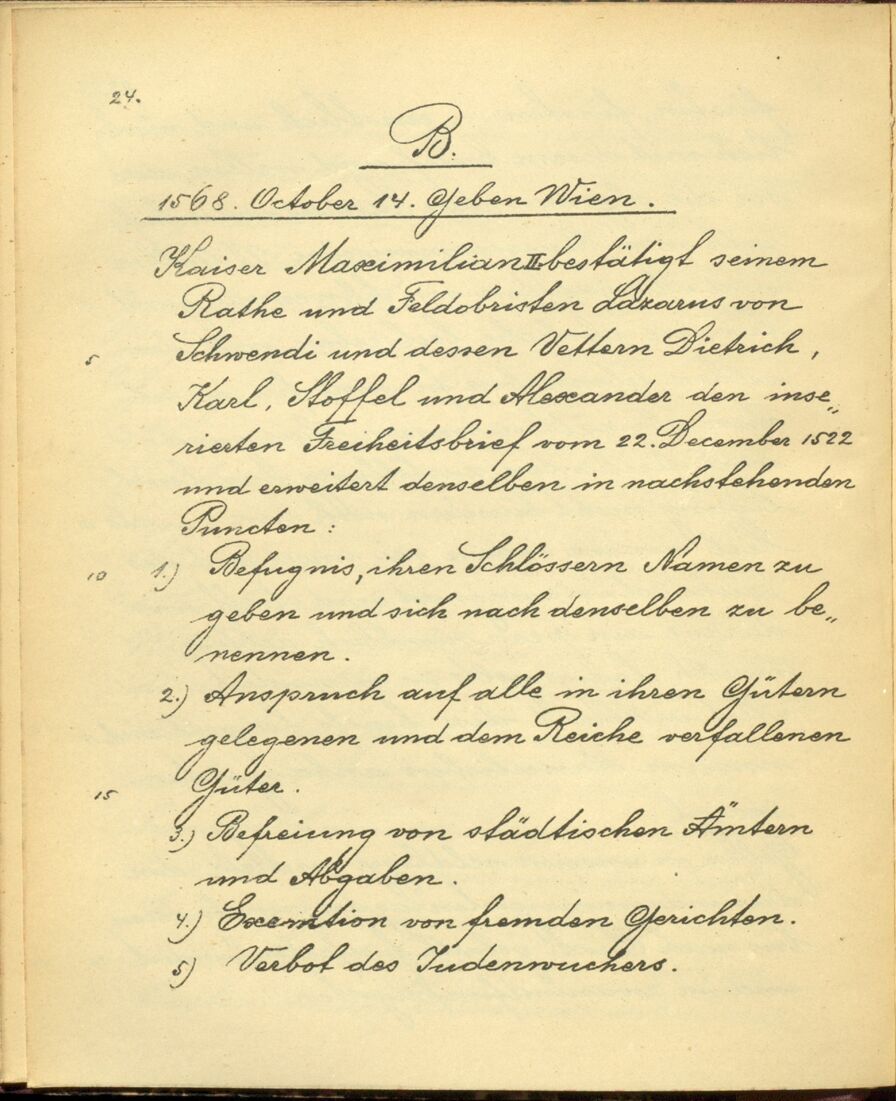 24.
B.
1568. October 14. Geben Wien.
Kaiser Maximilian II. bestätigt seinem
Rathe und Feldobristen Lazarus von
5 Schwendi und dessen Vettern Dietrich,
Karl, Stoffel und Alexander den inse„
rierten Freiheitsbrief vom 22. December 1522
und erweitert denselben in nachstehenden
Puncten:
10 1.) Befugnis, ihren Schlössern Namen zu
geben und sich nach denselben zu be„
nennen.
2.) Anspruch auf alle in ihren Gütern
gelegenen und dem Reiche verfallenen
15 Güter.
3.) Befreiung von städtischen Ämtern
und Abgaben.
4.) Exemtion von fremden Gerichten.
5) Verbot des Judenwuchers.